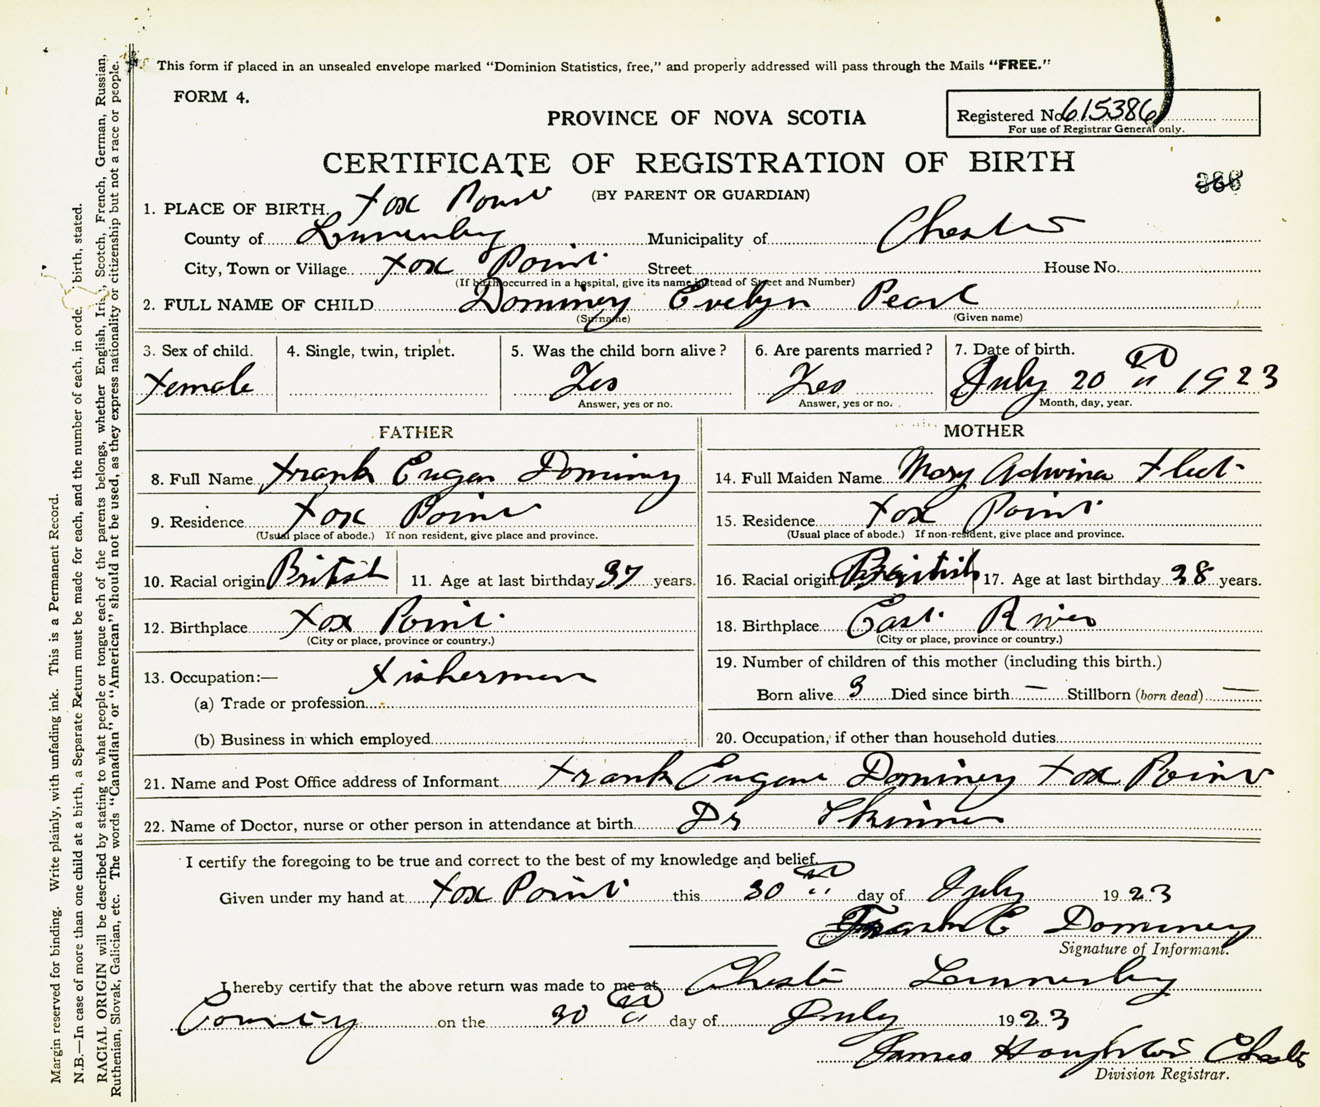 This form if placed in an unsealed envelope marked "Dominion Statistics, free," and properly addressed will pass through the Mails "FREE."
FORM 4.
PROVINCE OF NOVA SCOTIA
Registered No. 615386
For use of Registrar General only.
CERTIFICATE OF REGISTRATION OF BIRTH
(BY PARENT OR GUARDIAN)
1. PLACE OF BIRTH Fox Point
County of Lunenburg Municipality of Chester
City, Town or Village Fox Point Street House No.
(If birth occurred in a hospital, give its name instead of Street and Number)
2. FULL NAME OF CHILD Dominey Evelyn Pearl
(Surname) (Given name)
3. Sex of child. 4. Single, twin, triplet. 5. Was the child born alive? 6. Are parents married? 7. Date of birth.
Female Yes Yes July 20 1923
Answer, yes or no. Answer, yes or no. Month, day, year.
FATHER MOTHER
8. Full Name Frank Eugen Dominy 14. Full Maiden Name Mary Adwina Fleet
9. Residence Fox Point 15. Residence Fox Point
(Usual place of abode.) If non resident, give place and province. (Usual place of abode.) If non-resident, give place and province.
10. Racial origin British 11. Age at last birthday 37 years. 16. Racial origin British 17. Age at last birthday 38 years.
12. Birthplace Fox Point 18. Birthplace East River
(City or place, province or country.) (City or place, province or country.)
13. Occupation:— Fishermen 19. Number of children of this mother (including this birth.)
(a) Trade or profession Born alive 3 Died since birth — Stillborn (born dead) —
(b) Business in which employed 20. Occupation, if other than household duties
21. Name and Post Office address of Informant Frank Eugene Dominey Fox Point
22. Name of Doctor, nurse or other person in attendance at birth Dr Skinner
I certify the foregoing to be true and correct to the best of my knowledge and belief.
Given under my hand at Fox Point this 30 day of July 1923
Frank E Dominey
Signature of Informant.
I hereby certify that the above return was made to me at Chester Lunenburg
County on the 30 day of July 1923
James Houghton Chester
Division Registrar.
Margin reserved for binding. Write plainly, with unfading ink. This is a Permanent Record.
N.B.—In case of more than one child at a birth, a Separate Return must be made for each, and the number of each, in orde birth, stated.
RACIAL ORIGIN will be described by stating to what people or tongue each of the parents belongs, whether English, Iris, Scotch, French, German, Russian,
Ruthenian, Slovak, Galician, etc. The words "Canadian" or "American" should not be used, as they express nationality or citizenship but not a race or people.